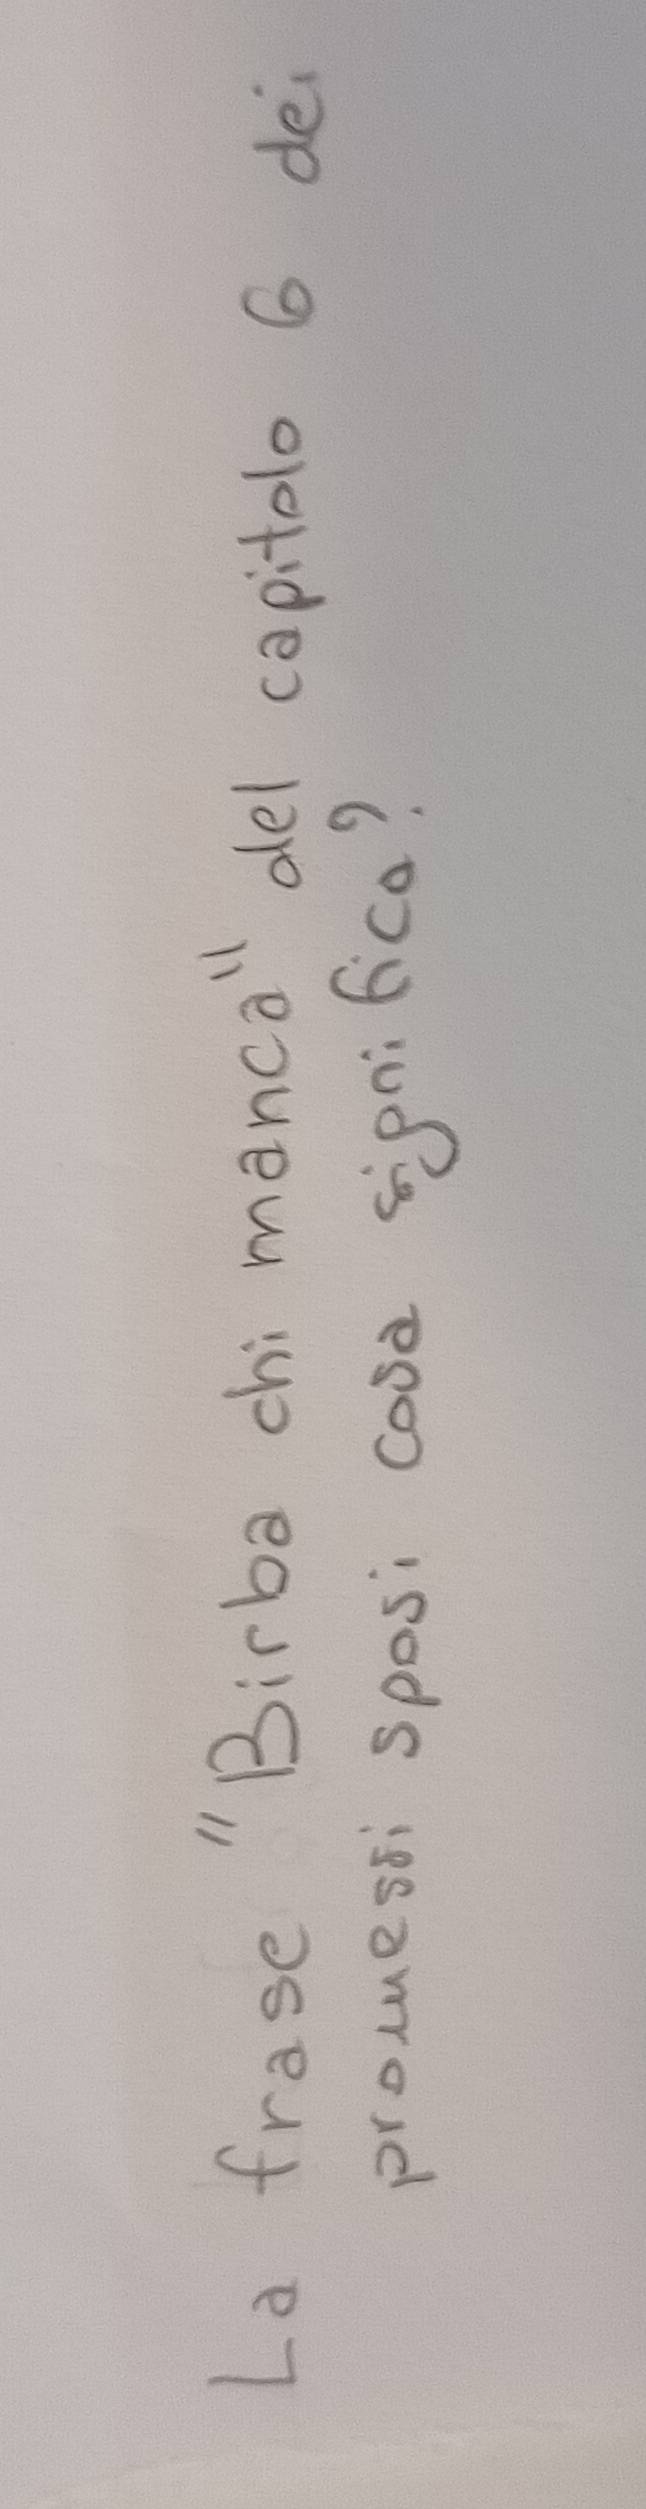 La frase "Birba chi manca" del capitolo 6 dei
promessi sposi cosa significa?